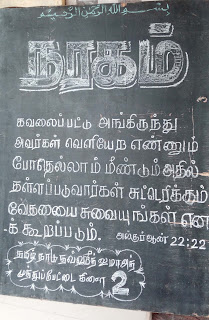 بسم الله الرحمن الرحيم
நரகம்
கவலைப்பட்டு அங்கிருந்து
அவர்கள் வெளியேற எண்ணும்
போதெல்லாம் மீண்டும் அதில்
தள்ளப்படுவார்கள் சுட்டெரிக்கும்
வேதனையை சுவையுங்கள் என
க் கூறப்படும். அல்குர்ஆன் 22:22
தமிழ் நாடு தவ்ஹீத் ஜமாஅத்
கிளை 2